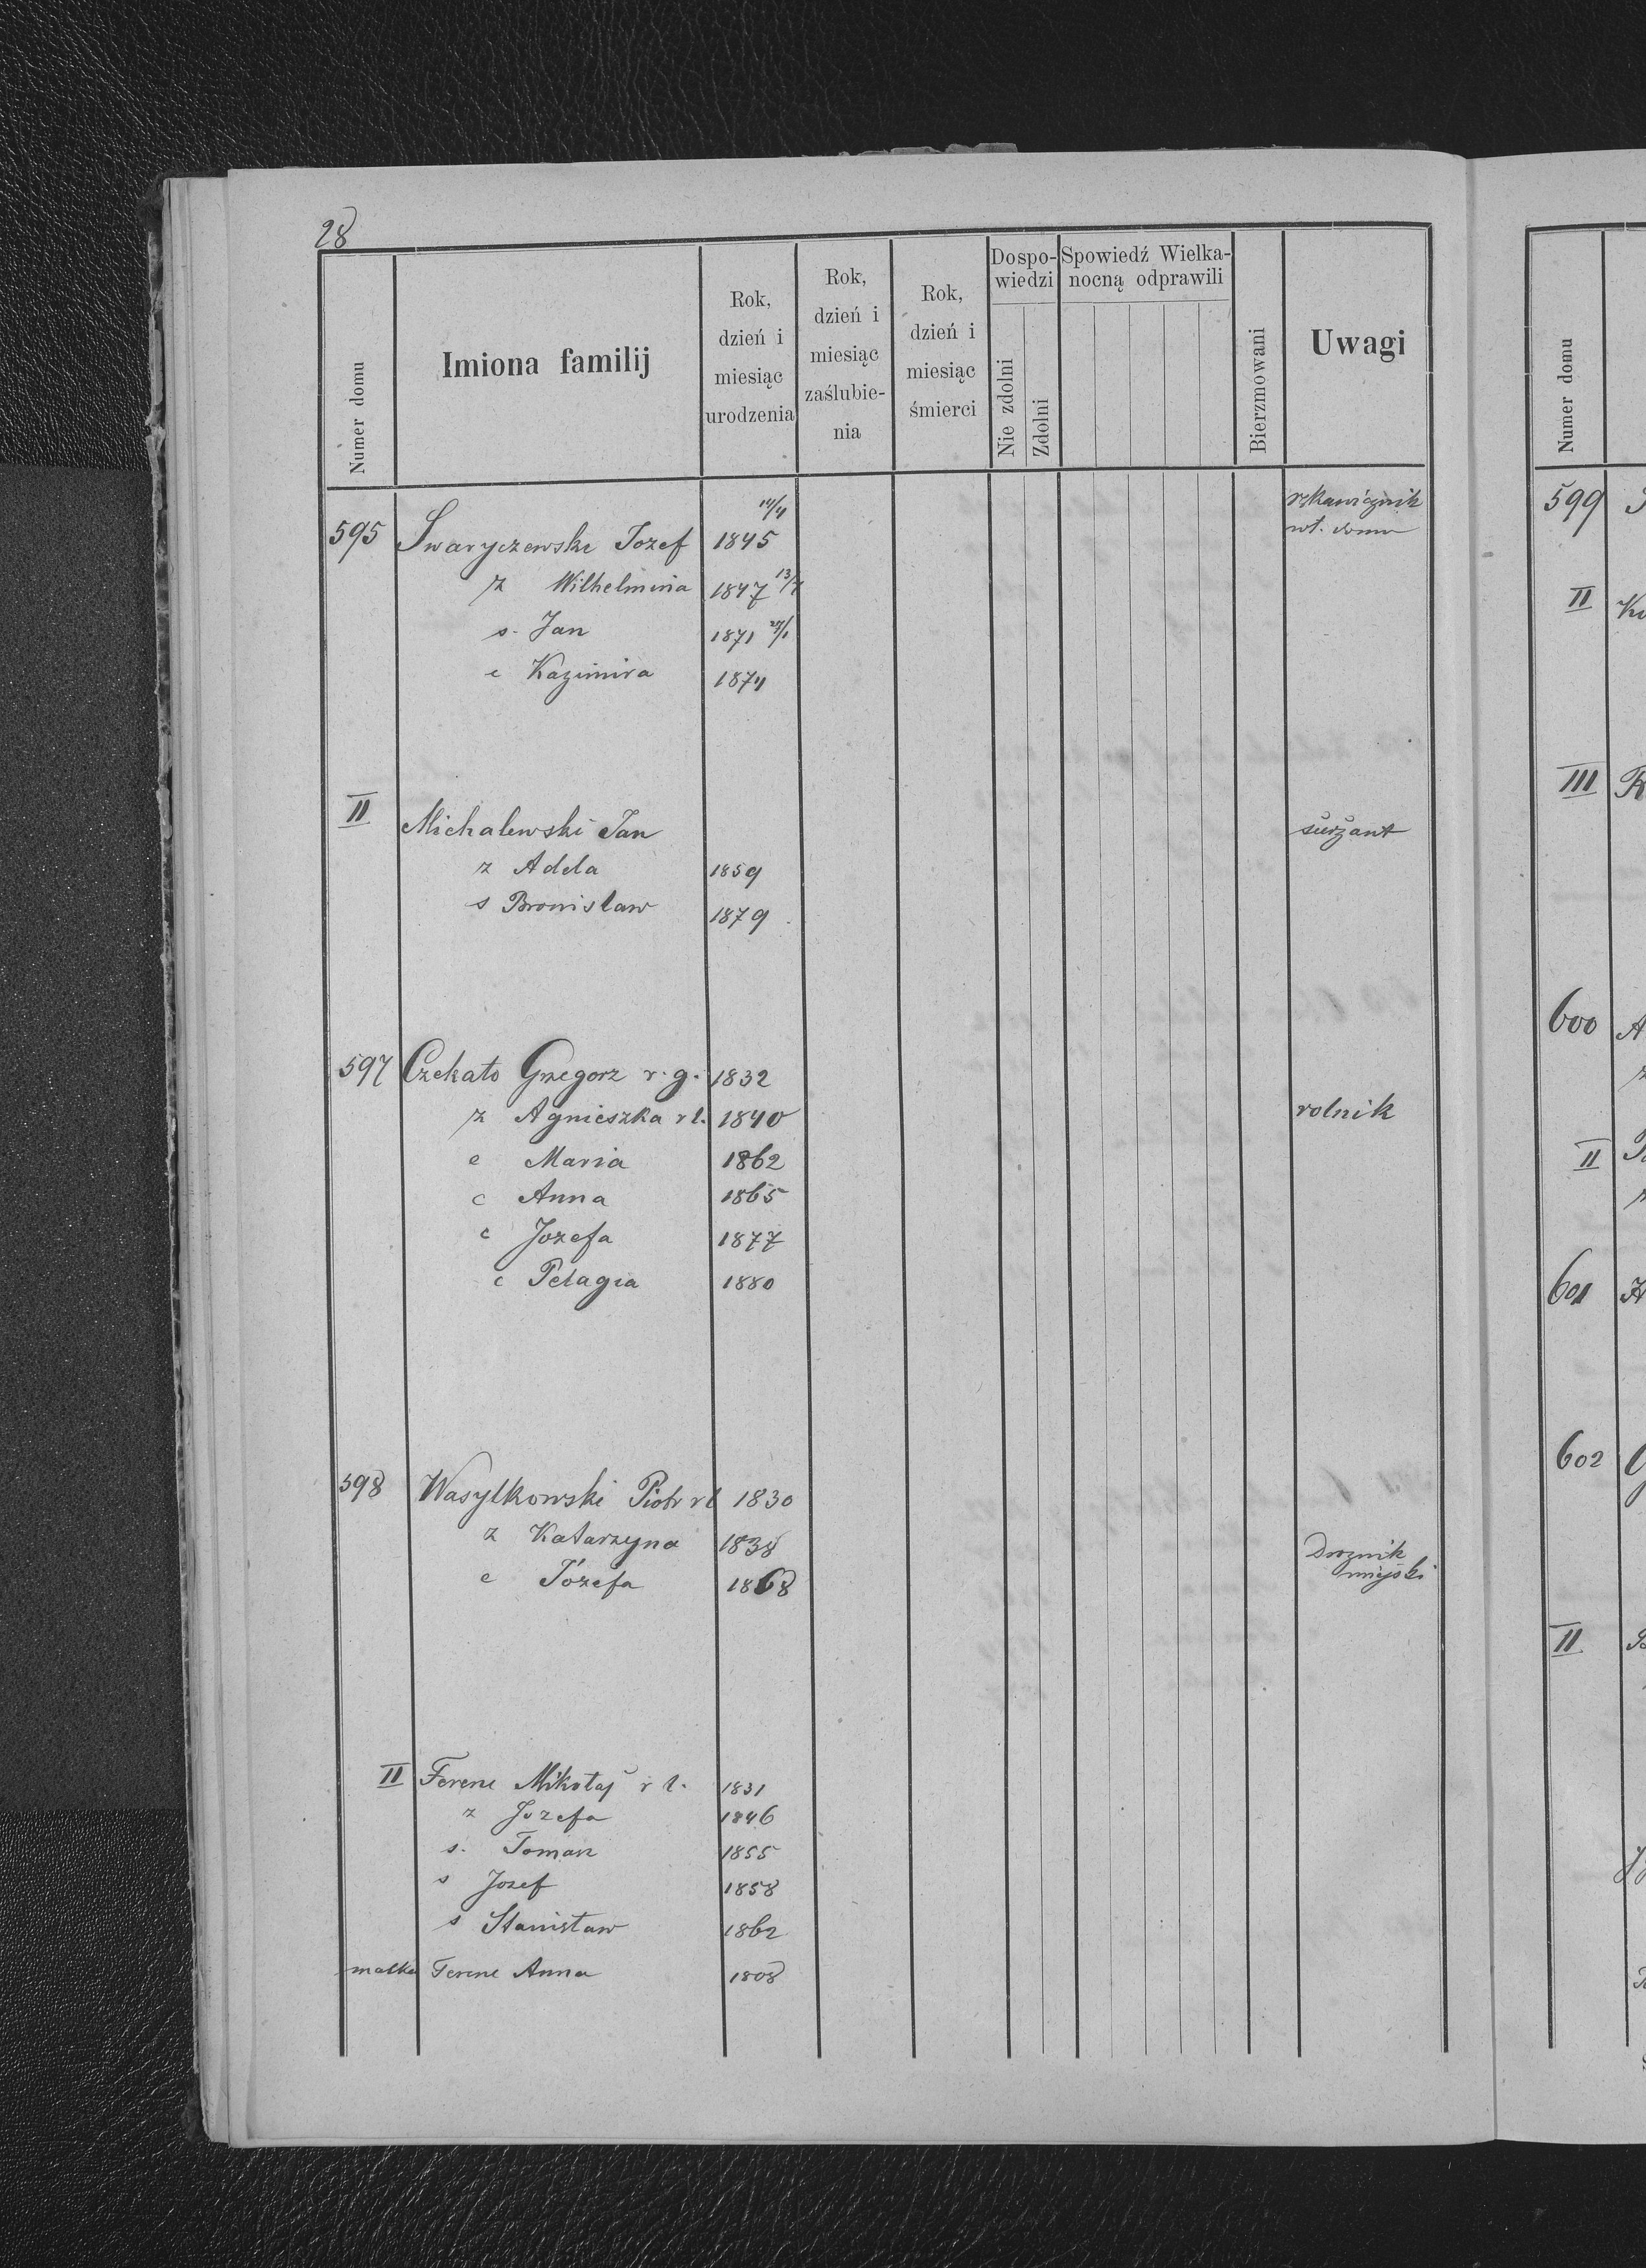 28
Numer domu
Imiona familij
Rok, dzień i miesiąc urodzenia
Rok, dzień i miesiąc zaślubie-nia
Rok, dzień i miesiąc śmierci
Dospo-wiedzi
Nie zdolni
Zdolni
Spowiedź Wielka-nocną odprawili
Bierzmowani
Uwagi
595 Swaryczewski Jozef 1845
wł. domu
ż Wilhelmina 1847
s. Jan 1871
c Kazimira 1874
II Michalewski Jan
ż Adela 1859
s Bronisław 1879
597 Czekało Grzegorz r. g. 1832
ż Agnieszka r l. 1840 rolnik
c Maria 1862
c Anna 1865
c Jozefa 1877
c Pelagia 1880
598 Wasylkowski Piotr r l 1830
ż Katarzyna 1838 Drożnik
miejski
c Józefa 1868
II Ferenc Mikołaj r l. 1831
ż Jozefa 1846
s. Tomasz 1855
s Jozef 1858
s Stanisław 1862
matka Ferenc Anna 1808
Numer domu
599
II
III
600
II
601
602
II